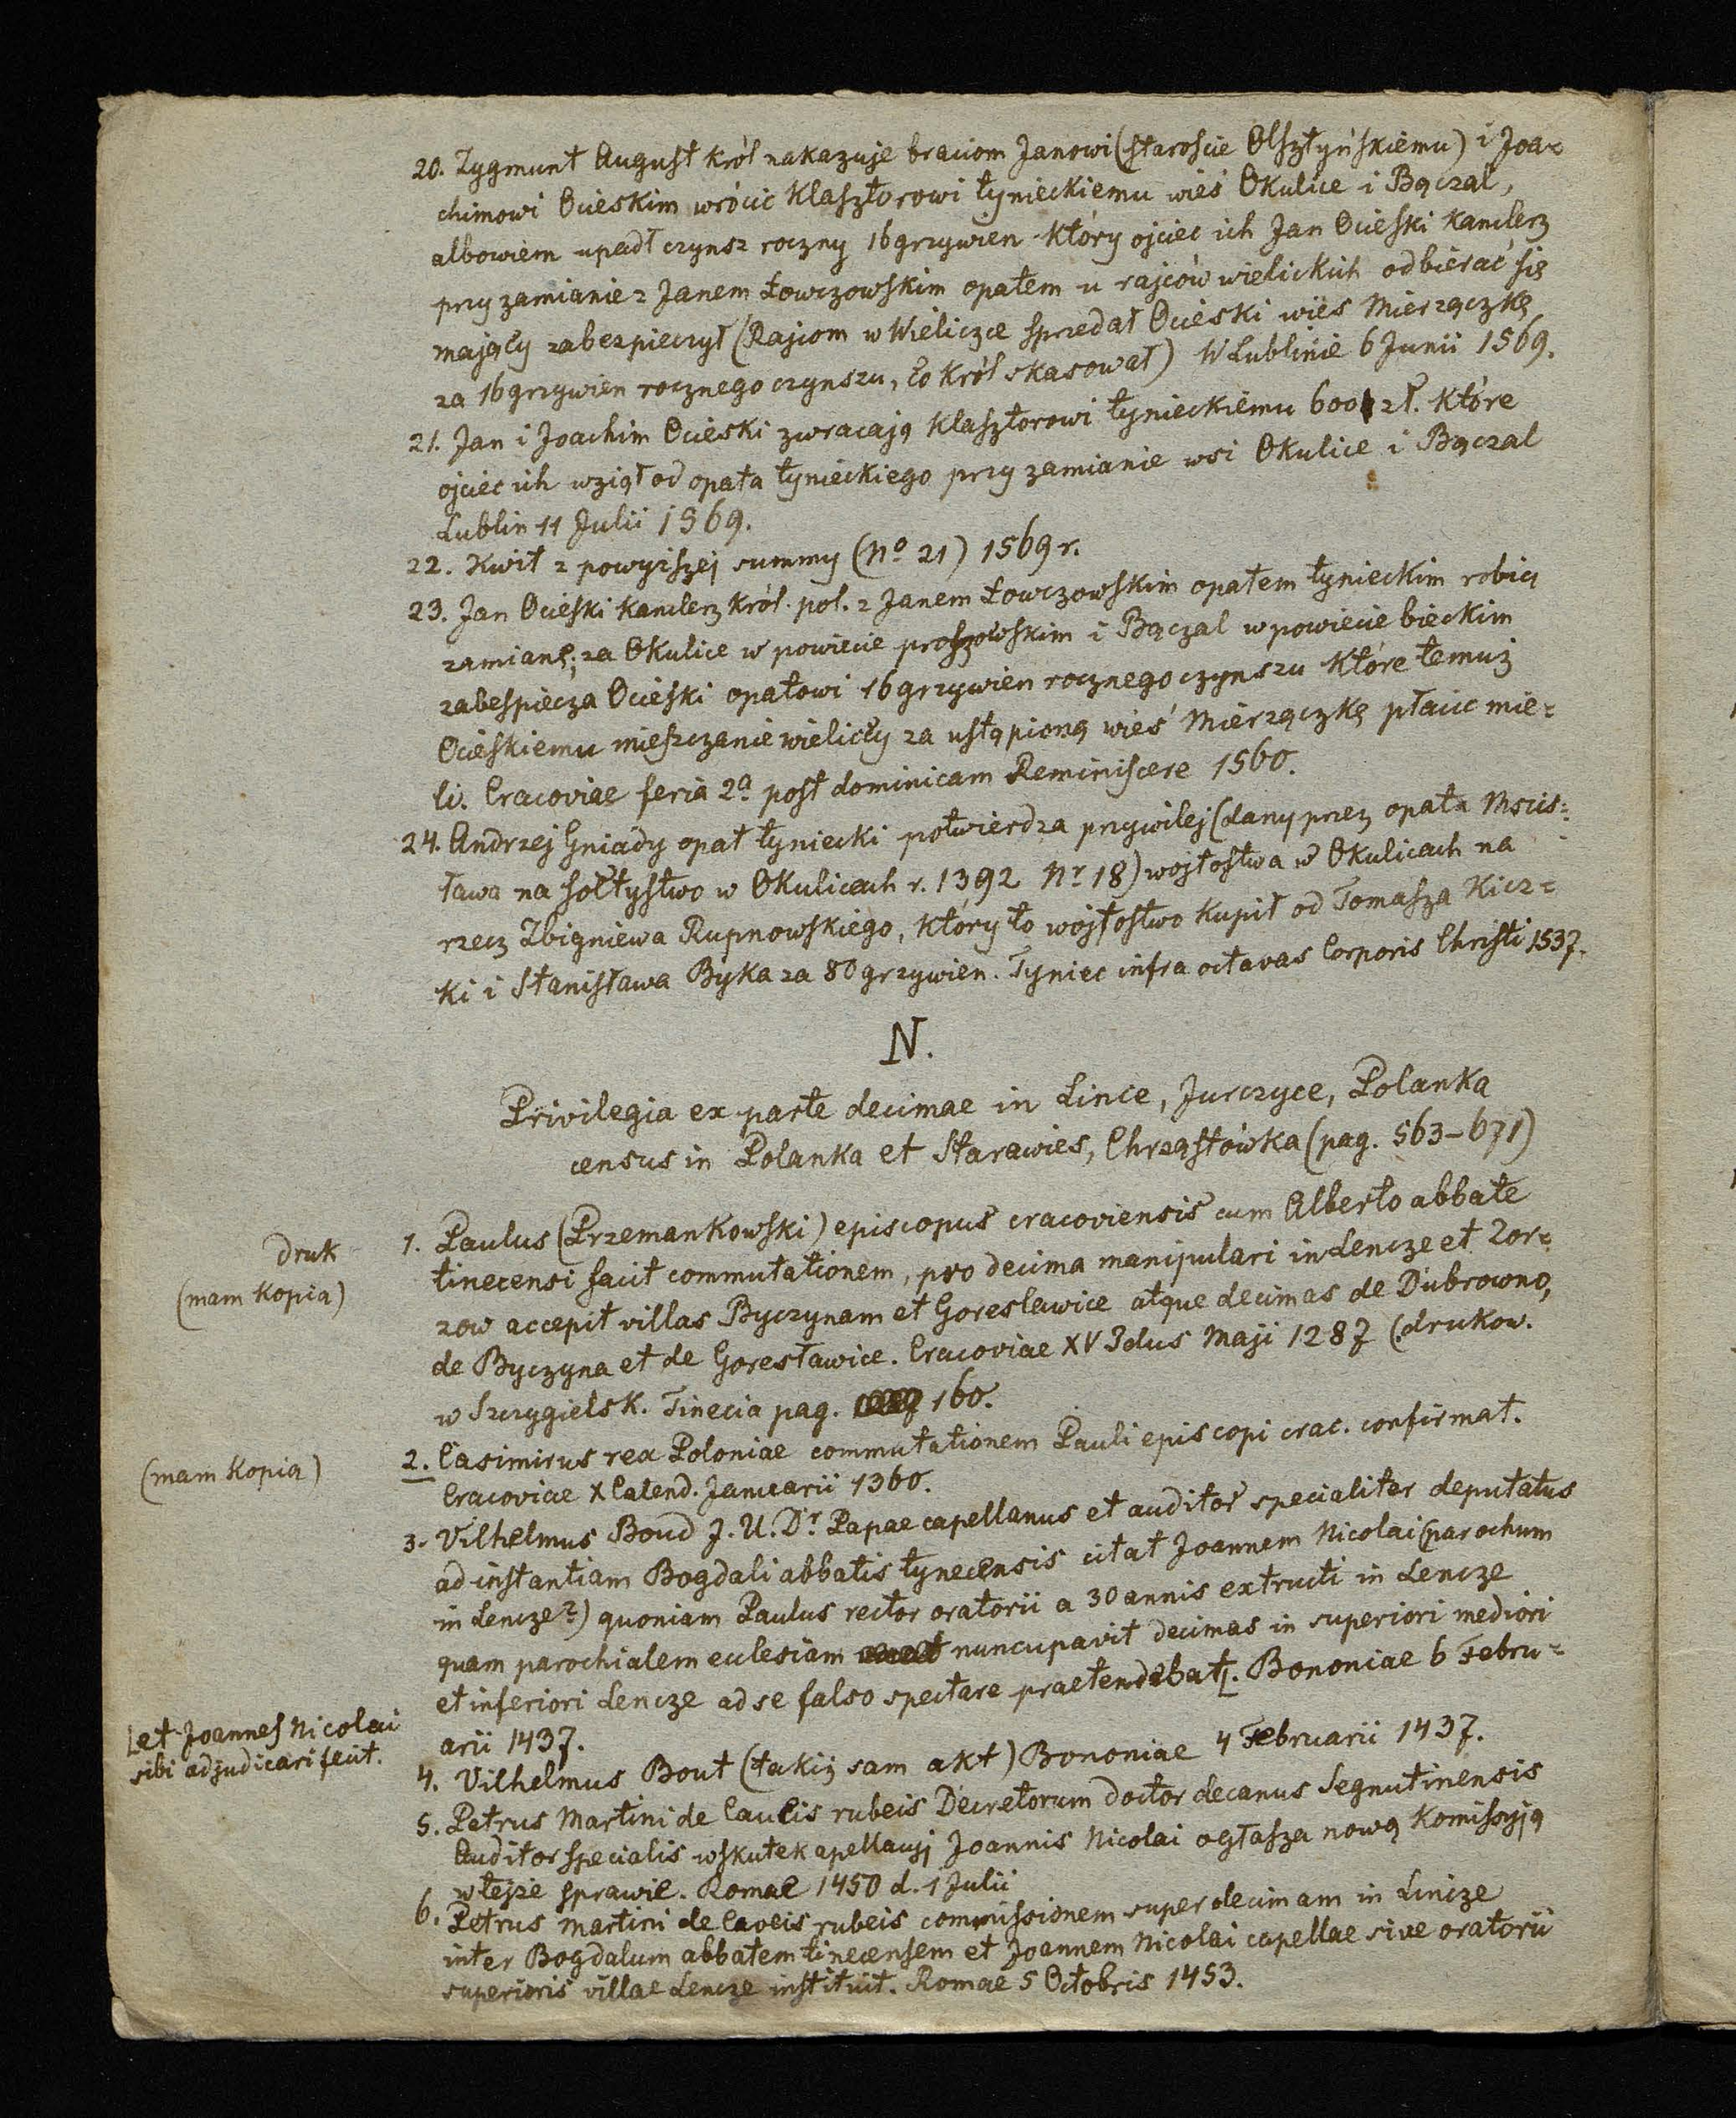 20. Zygmunt August król nakazuje braciom Janowi (staroście Olsztyńskiemu) i Joa=
chimowi Ocieskim wrócić klasztorowi tynieckiemu wieś Okulice i Bączal,
albowiem upadł czynsz roczny 16 grzywien który ojciec ich Jan Ocieski kanclerz
przy zamianie z Janem Łowczowskim opatem u rajców wielickich odbierać się
mający zabezpieczył (Rajcom w Wieliczce sprzedał Ocieski wieś Mierzączkę
za 16 grzywien rocznego czynszu, co król skasował) W Lublinie 6 Junii 1569.
21. Jan i Joachim Ocieski zwracają klasztorowi tynieckiemu 600 zł. które
ojciec ich wziął od opata tynieckiego przy zamianie wsi Okulice i Bączal
Lublin 11 Julii 1569.
22. Kwit z powyższej summy (No 21) 1569 r.
23. Jan Ocieski kanclerz król. pol. z Janem Łowczowskim opatem tynieckim robią
zamianę; za Okulice w powiecie proszowskim i Bączal w powiecie bieckim
zabespiecza Ocieski opatowi 16 grzywien rocznego czynszu które temuż
Ocieskiemu mieszczanie wieliccy za ustąpioną wieś Mierzączkę płacić mie=
li. Cracoviae feria 2a post dominicam Reminiscere 1560.
24. Andrzej Gniady opat tyniecki potwierdza przywilej (dany przez opata Mscis=
ława na sołtystwo w Okulicach r. 1392 Nr 18) wojtostwa w Okulicach na
rzecz Zbigniewa Rupnowskiego, który to wojtostwo kupił od Tomasza Kicz=
ki i Stanisława Byka za 80 grzywien. Tyniec infra octavas Corporis Christi 1537.
N.
Privilegia ex parte decimae in Lince, Jurczyce, Polanka
census in Polanka et Starawies, Chrząstówka (pag. 563-671)
druk
(mam kopia)
1. Paulus (Przemankowski) episcopus cracoviensis cum Alberto abbate
tinecensi facit commutationem, pro decima manipulari in Lencze et Zor=
zow accepit villas Byczynam et Goreslawice atque decimas de Dubrowno,
de Byczyna et de Goresławice. Cracoviae XV Idus Maji 1287 (drukow.
w Szczygielsk. Tinecia pag. 160.
(mam kopia)
2. Casimirus rex Poloniae commutationem Pauli episcopi crac. confirmat.
Cracoviae X Calend. Januarii 1360.
3. Vilhelmus Boud J. U. Dr Papae capellanus et auditor specialiter deputatus
ad instantiam Bogdali abbatis tynecensis citat Joannem Nicolai (parochum
in Lencze?) quoniam Paulus rector oratorii a 30 annis extructi in Lencze
quam parochialem ecclesiam nuncupavit decimas in superiori mediori
et inferiori Lencze ad se falso spectare praetendebat. Bononiae 6 Febru=
arii 1437.
et Joannes Nicolai
sibi adjudicari fecit.
4. Vilhelmus Bout (takiż sam akt) Bononiae 4 Februarii 1437.
5. Petrus Martini de Caveis rubeis Decretorum doctor decanus Segnutinensis
Auditor specialis wskutek apellacyj Joannis Nicolai ogłasza nową Komissyją
w tejże sprawie. Romae 1450 d. 1 Julii
6. Petrus Martini de Caveis rubeis commissionem super decimam in Lincze
inter Bogdalum abbatem tinecensem et Joannem Nicolai capellae sive oratorii
superioris villae Lencze instituit. Romae 5 Octobris 1453.